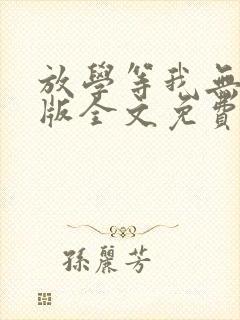 放學等我無
版全文免費
孫麗芳